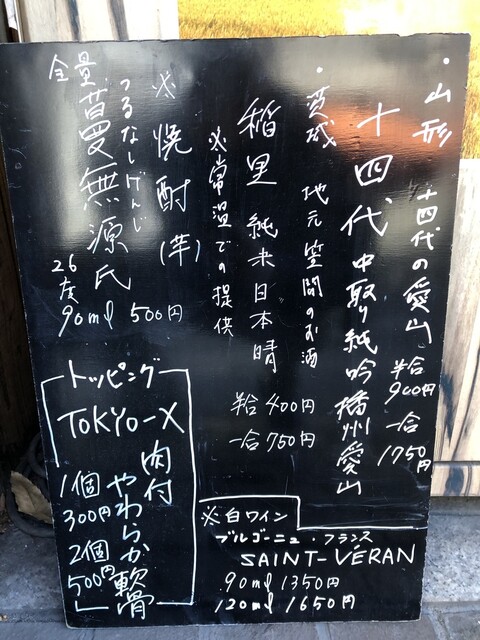 ・山形 十四代の愛山
十四代 中取り純吟 播州愛山
半合900円
一合1750円
・茨城 地元 笠間のお酒
稲里 純米 日本晴
※常温での提供
半合400円
一合750円
※焼酎(芋)
全量
蔓無源氏
つるなしげんじ
26度
90ml 500円
トッピング
TOKYO-X
肉付
やわらか軟骨
1個
300円
2個
500円
※白ワイン
ブルゴーニュ・フランス
SAINT-VÉRAN
90ml 1350円
120ml 1650円